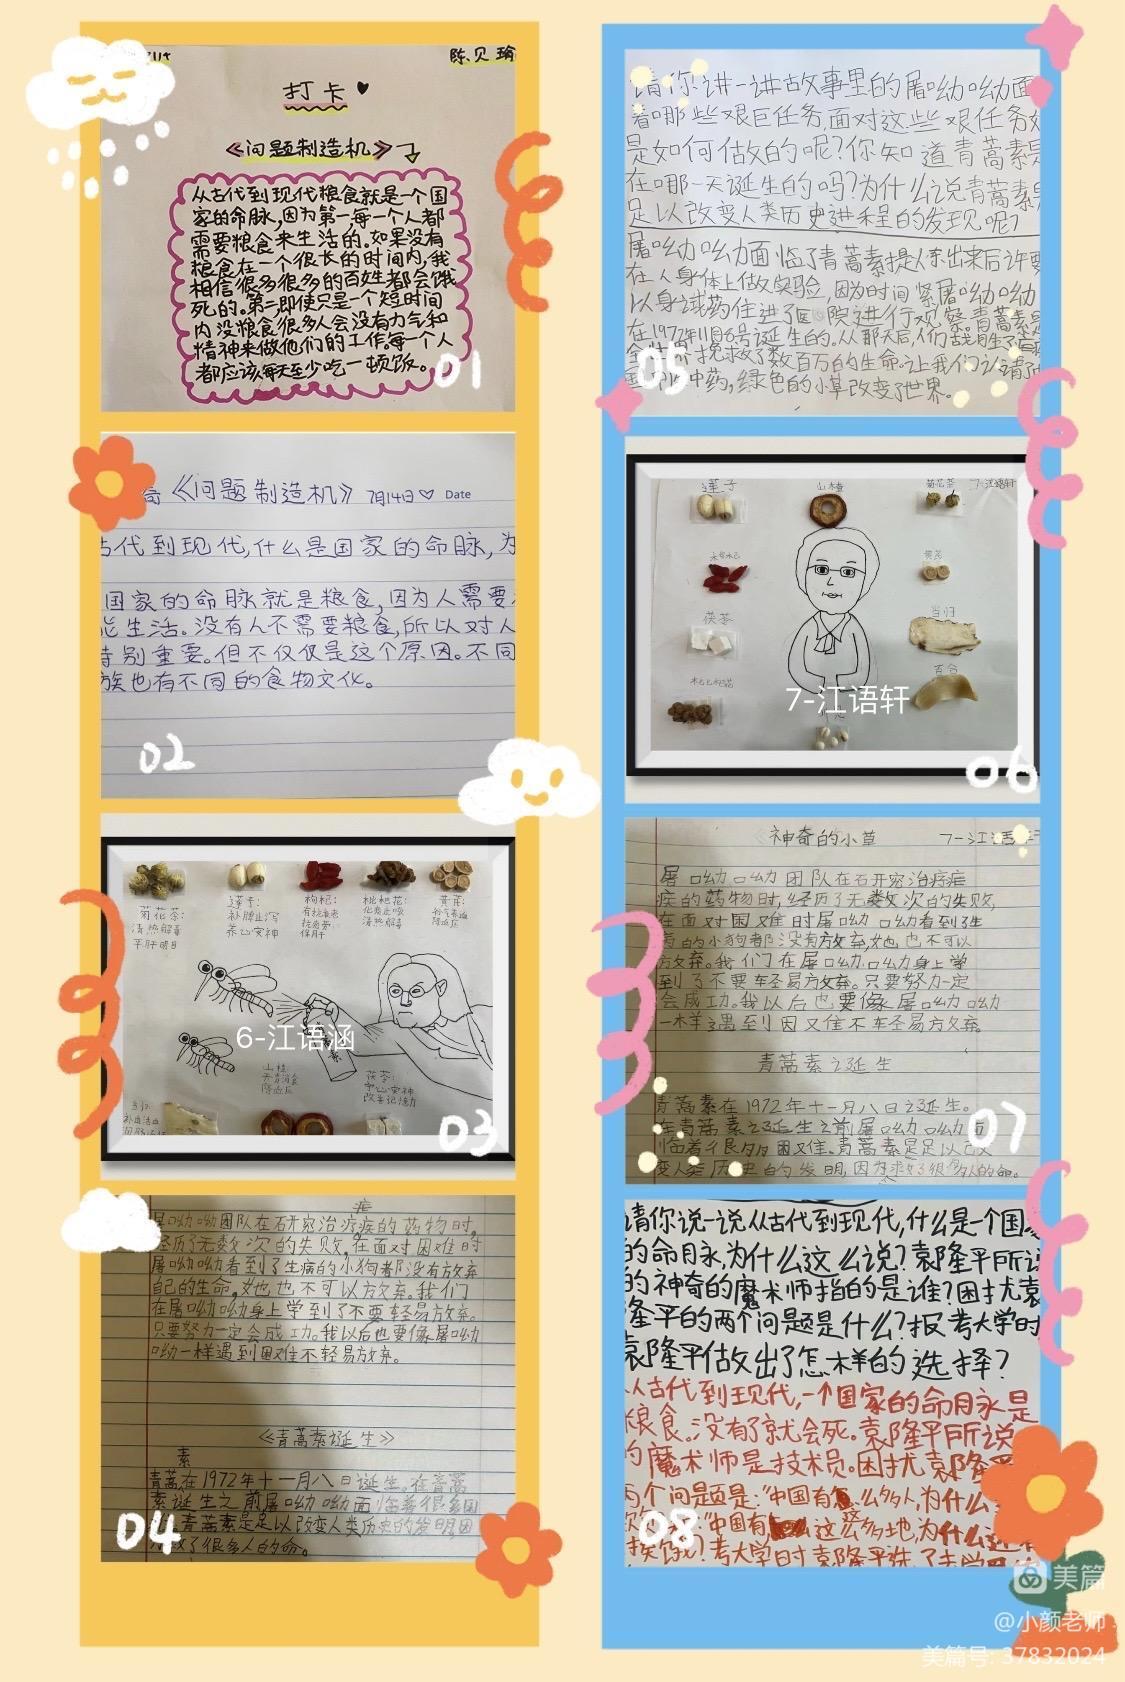 陈贝瑜
打卡
《问题制造机》
从古代到现代粮食就是一个国
家的命脉,因为第一,每一个人都
需要粮食来生活的。如果没有
粮食在一个很长的时间内,我
相信很多很多的百姓都会饿
死的。第二,即使只是一个短时间
内没粮食很多人会没有力气和
精神来做他们的工作。每一个人
都应该每天至少吃一顿饭。
01
《问题制造机》 7月14日 Date
古代到现代,什么是国家的命脉,为
国家的命脉就是粮食,因为人需要
能生活。没有人不需要粮食,所以对人
特别重要。但不仅仅是这个原因。不同
族也有不同的食物文化。
02
菊花茶:
清热解毒
平肝明目
莲子:
补脾止泻
养心安神
枸杞:
有抗衰老
抗疲劳
保肝
枇杷花:
化痰止咳
清热解毒
黄芪:
补气养血
降血压
6-江语涵
山楂:
开胃消食
降血压
茯苓:
宁心安神
改善记忆力
当归:
补血活血
03
疟
屠呦呦团队在研究治疗疾的药物时,
经历了无数次的失败,在面对困难时
屠呦呦看到了生病的小狗都没有放弃
自己的生命,她也不可以放弃。我们
在屠呦呦身上学到了不要轻易放弃。
只要努力一定会成功。我以后也要像屠呦
呦一样遇到困难不轻易放弃。
《青蒿素诞生》
素
青蒿在1972年十一月八日诞生。在青蒿
素诞生之前屠呦呦面临着很多困
青蒿素是足以改变人类历史的发明因
救了很多人的命。
04
请你讲一讲故事里的屠呦呦面
着哪些艰巨任务,面对这些艰任务
是如何做的呢?你知道青蒿素是
在哪一天诞生的吗?为什么说青蒿素是
足以改变人类历史进程的发现呢?
屠呦呦面临了青蒿素提炼出来后许要
在人身体上做实验,因为时间紧屠呦呦
以身试药住进了医院进行观察。青蒿素是
在1972年11月8号诞生的。从那天后,人们战胜了
拯救了数百万的生命。让我们
中药,绿色的小草改变了世界。
05
莲子
山楂
菊花茶 7-江语轩
黄芪
茯苓
当归
枇杷花
百合
7-江语轩
06
神奇的小草
屠呦呦团队在研究治疗疟
疾的药物时,经历了无数次的失败,
在面对困难时屠呦呦看到生
病的小狗都没有放弃她也不可以
放弃。我们在屠呦呦身上学
到了不要轻易放弃。只要努力一定
会成功。我以后也要像屠呦呦
一样遇到困难不轻易放弃。
青蒿素之诞生
青蒿素在1972年十一月八日之诞生。
在青蒿素之诞生之前屠呦呦面
临着很多困难。青蒿素是足以改
变人类历史的发明,因为求了很多人的命。
07
请你说一说从古代到现代,什么是一个国家
的命脉,为什么这么说?袁隆平所说
的神奇的魔术师指的是谁?困扰袁
隆平的两个问题是什么?报考大学时
袁隆平做出了怎样的选择?
从古代到现代,一个国家的命脉是
粮食。没有了就会死。袁隆平所说
的魔术师是技术员。困扰袁隆平
两个问题是:“中国有么多人,为什么
“中国有这么多地,为什么
挨饿?考大学时袁隆平选了去学
08
美篇
@小颜老师
美篇号: 37832024